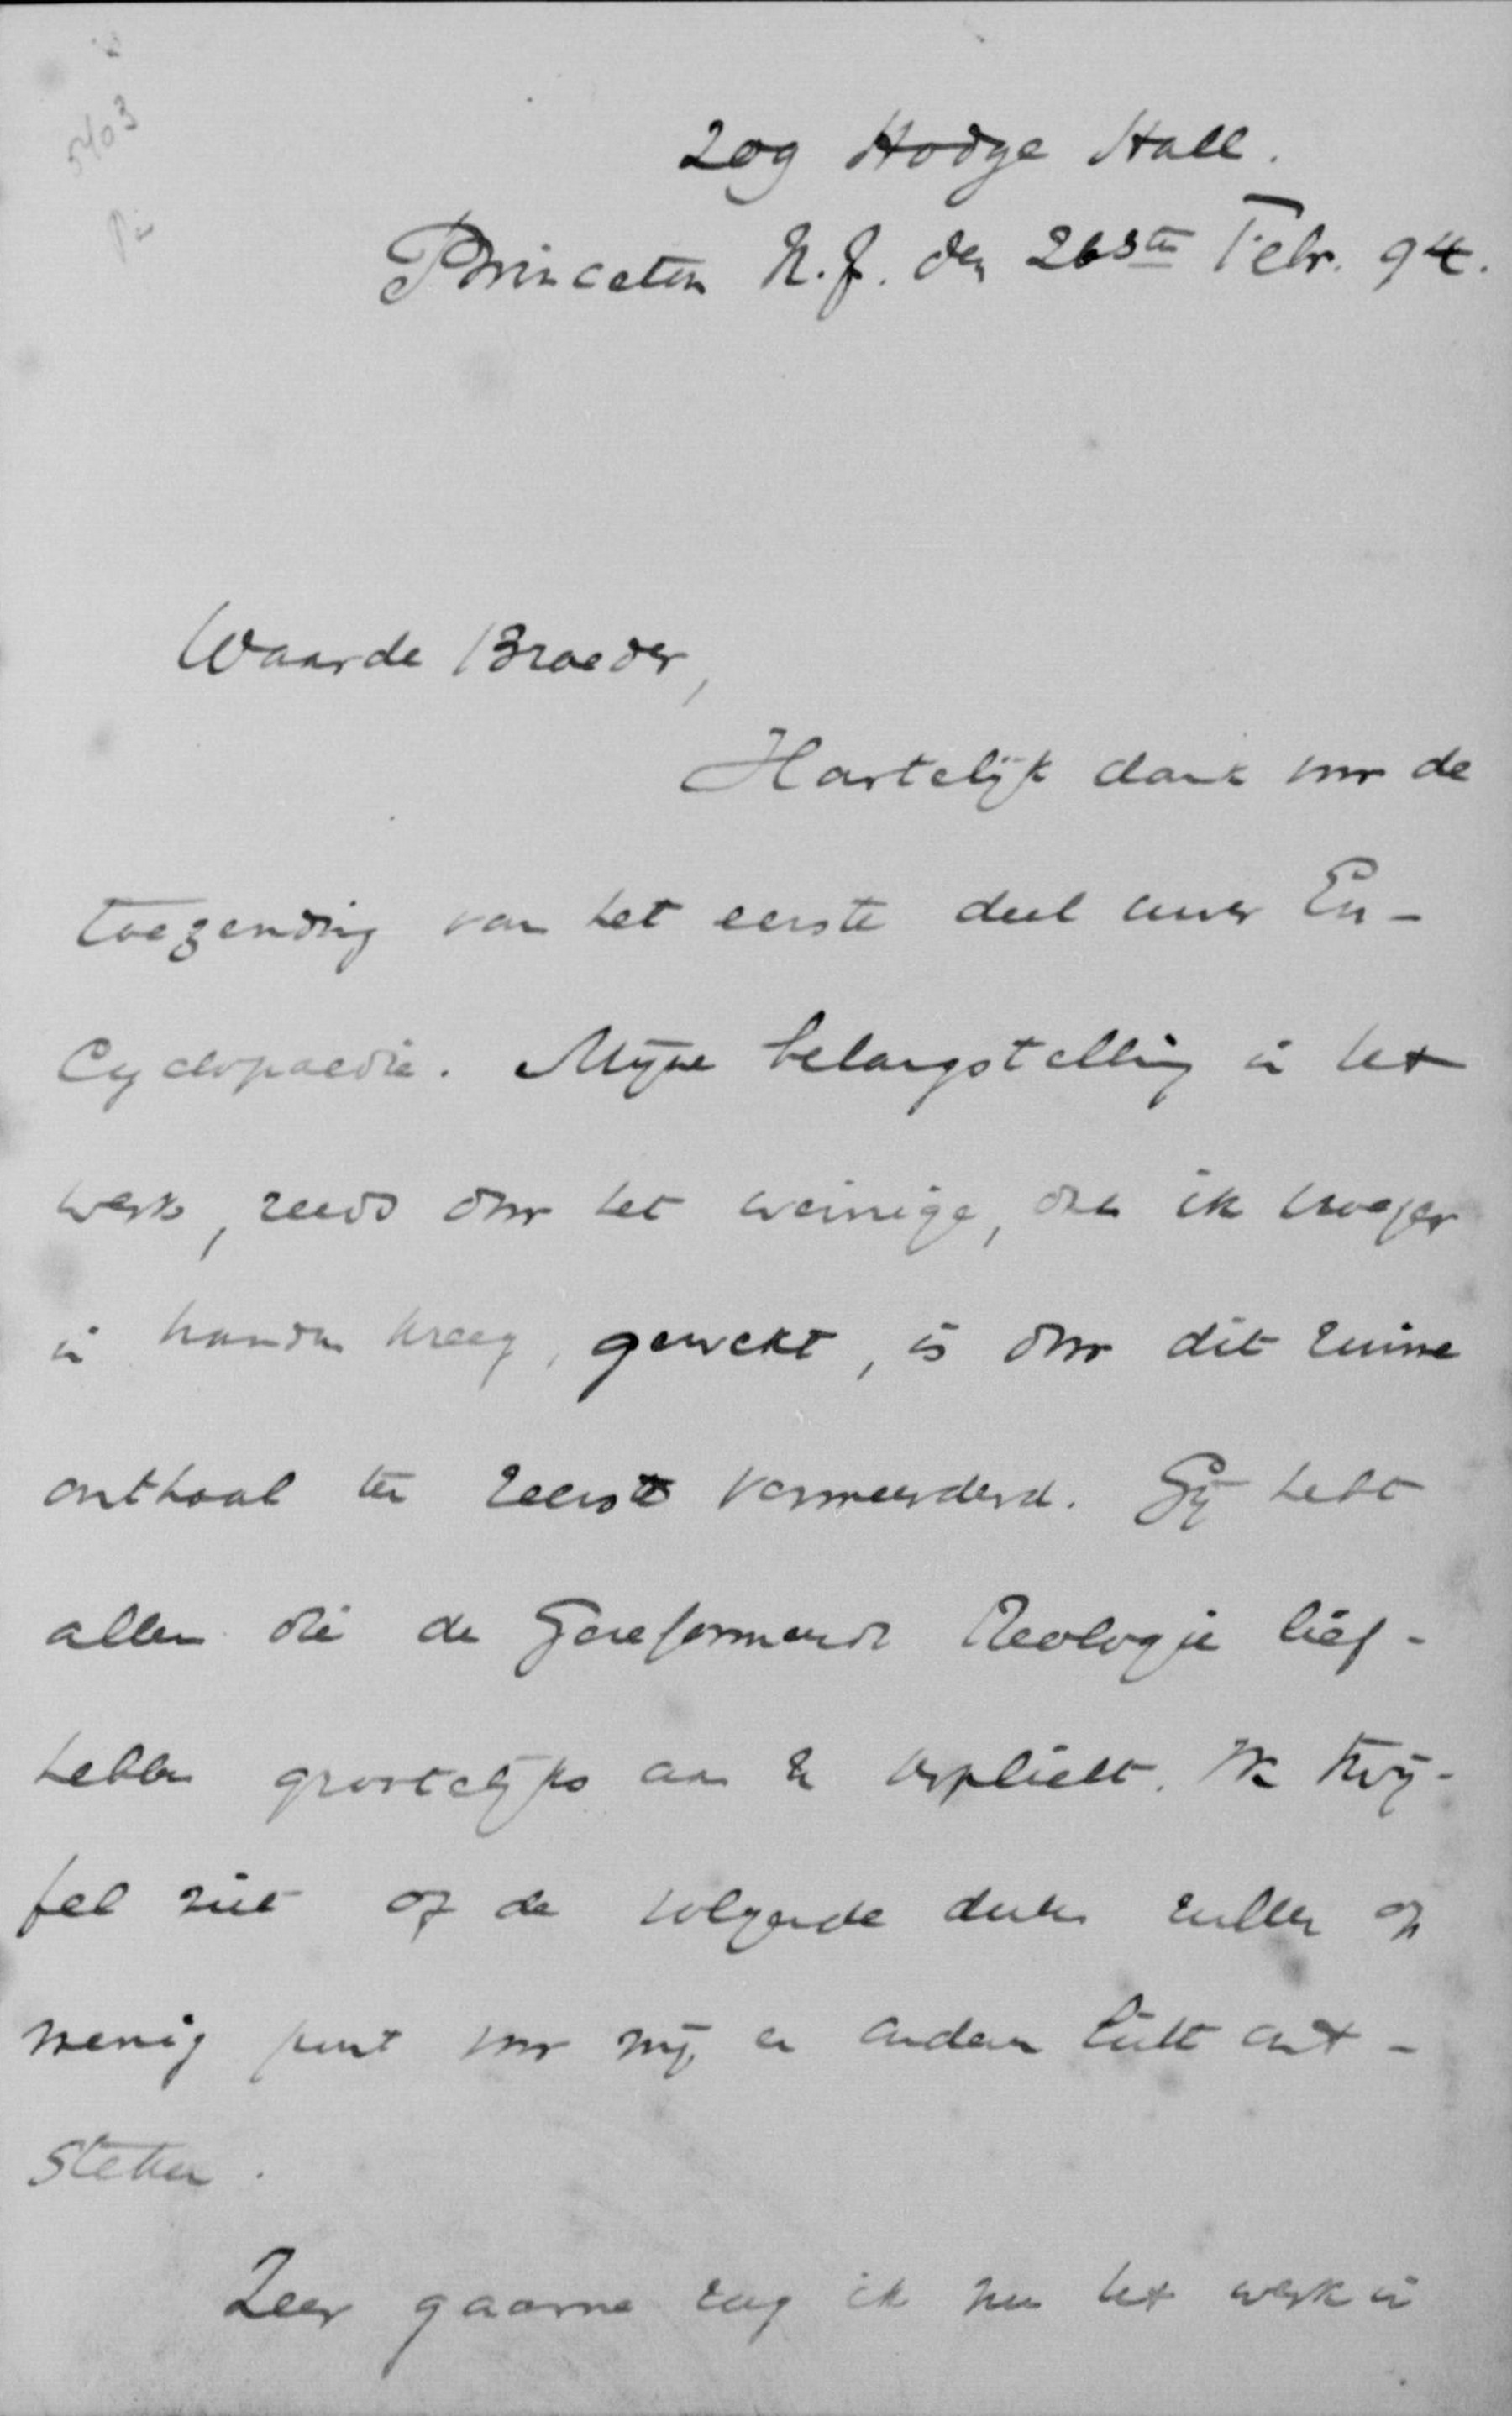 5403
209 Hodge Hall.
Princeton N.J. den 26sten Febr. 94.
Waarde Broeder,
Hartelijk dank voor de
toezending van het eerste deel uwer En-
cyclopaedie. Mijne belangstelling in het
werk, reeds door het weinige, dat ik vroeger
in handen kreeg, gewekt, is door dit ruime
onthaal ten zeerste vermeerderd. Gij hebt
allen die de Gereformeerde Theologie lief-
hebben grootelijks aan U verplicht. Ik twij-
fel niet of de volgende deelen zullen op
menig punt voor mij en anderen licht ont-
steken.
Zeer gaarne zag ik nu het werk in